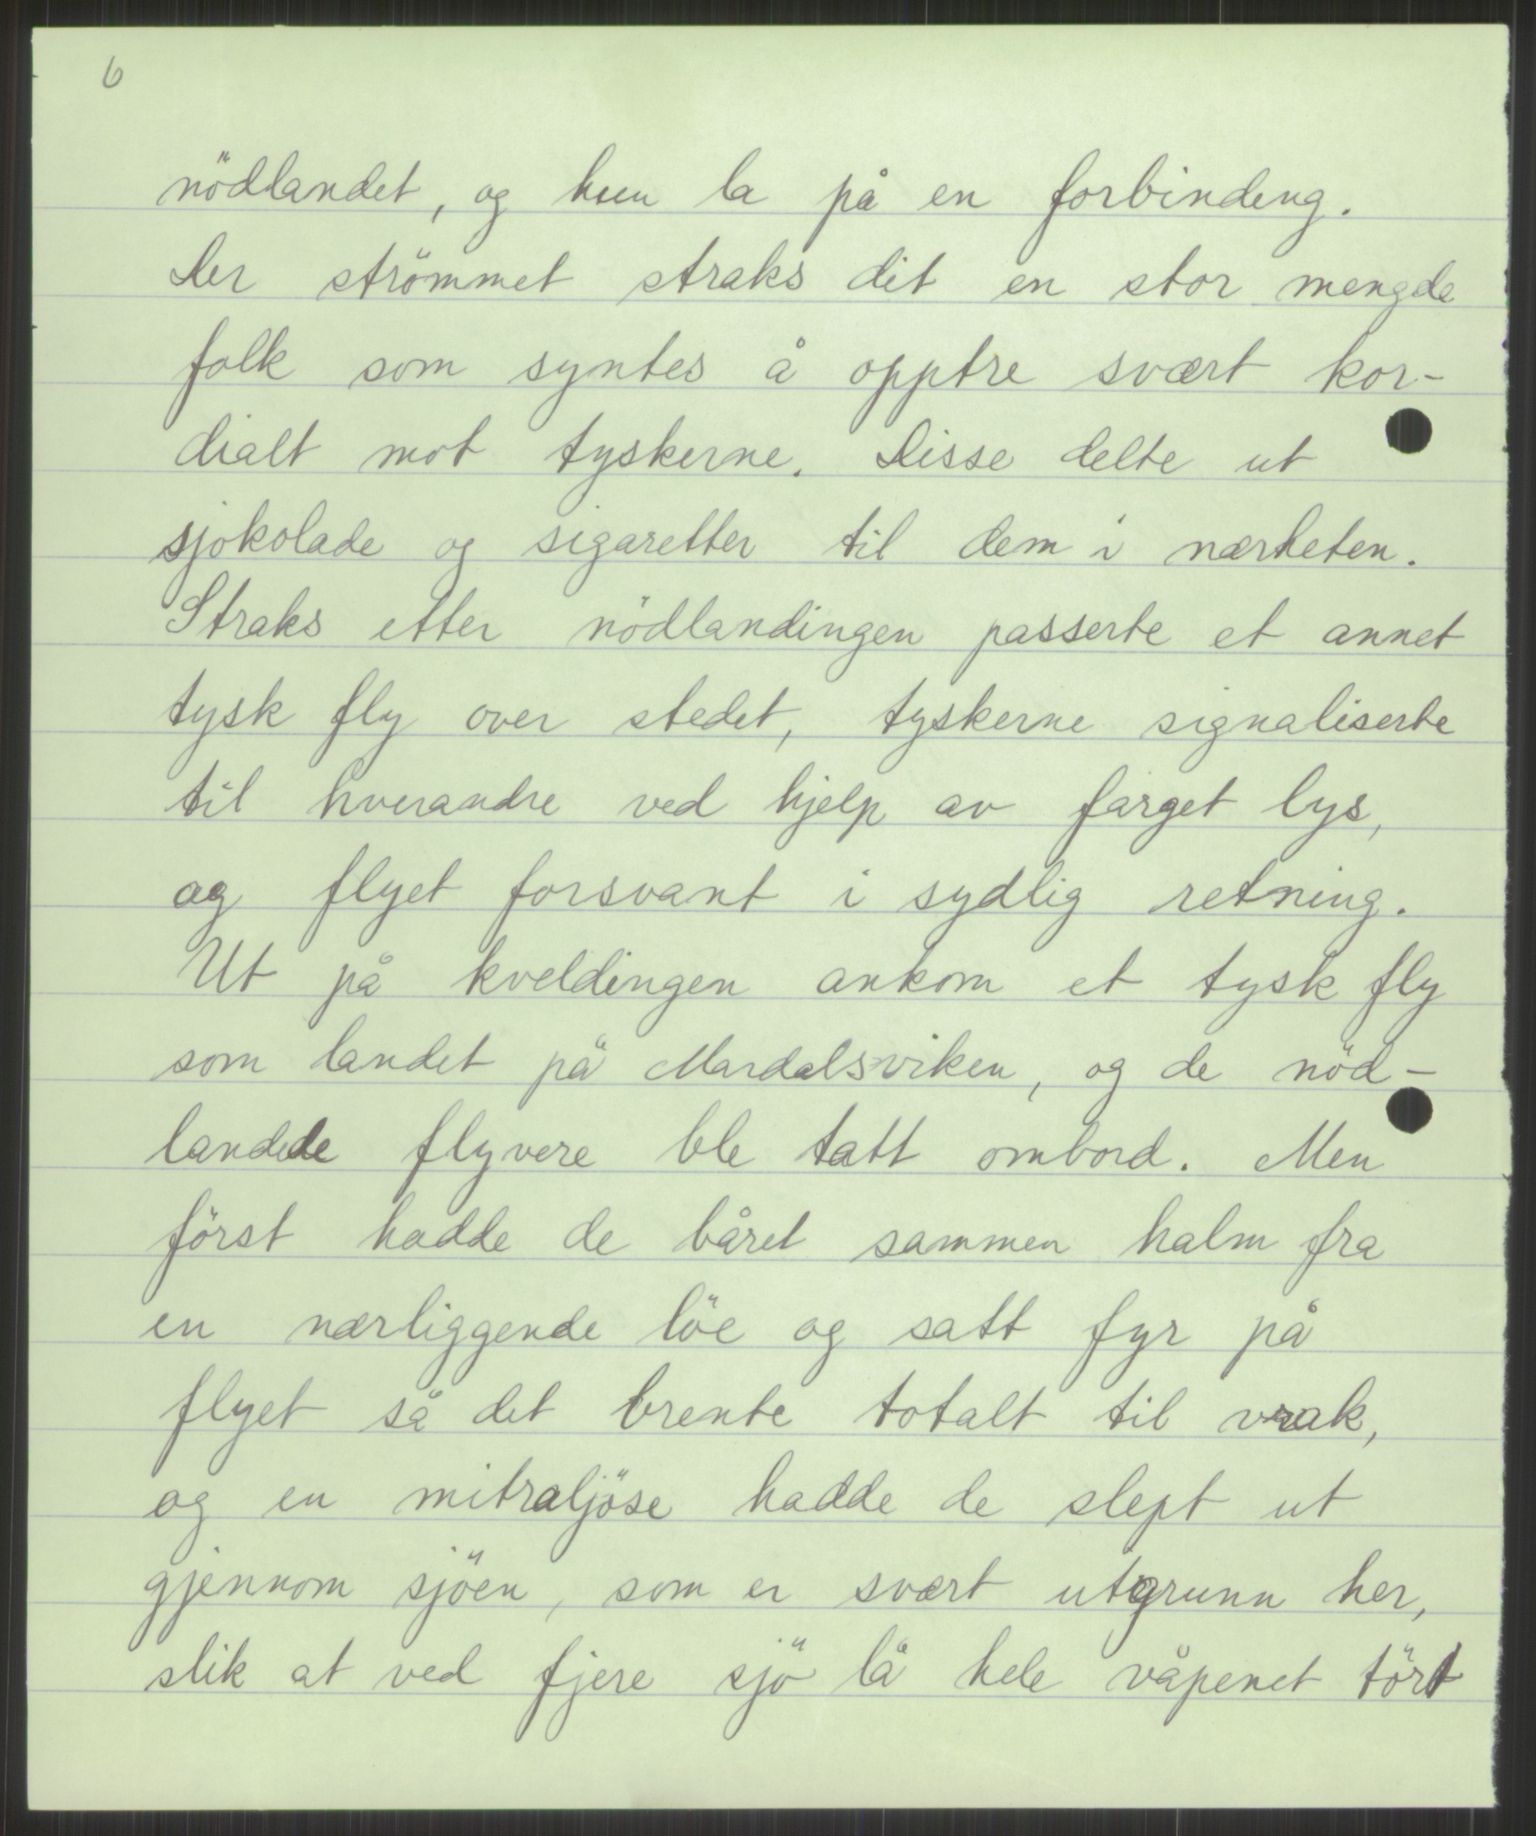 6
nödlandet, og hun la på en forbinding.
Der strömmet straks dit en stor mengde
folk som syntes å opptre svært kor-
dialt mot tyskerne. Disse delte ut
sjokolade og sigaretter til dem i nærheten.
Straks etter nödlandingen passerte et annet
tysk fly over stedet, tyskerne signaliserte
til hverandre ved hjelp av farget lys,
og flyet forsvant i sydlig retning.
Ut på kveldingen ankom et tysk fly
som landet på Mardalsviken, og de nöd-
landede flyvere ble tatt ombord. Men
först hadde de båret sammen halm fra
en nærliggende löe og satt fyr på
flyet så det brente totalt til vrak,
og en mitraljöse hadde de slept ut
gjennom sjöen, som er svært utgrunn her,
slik at ved fjere sjö lå hele våpenet tört